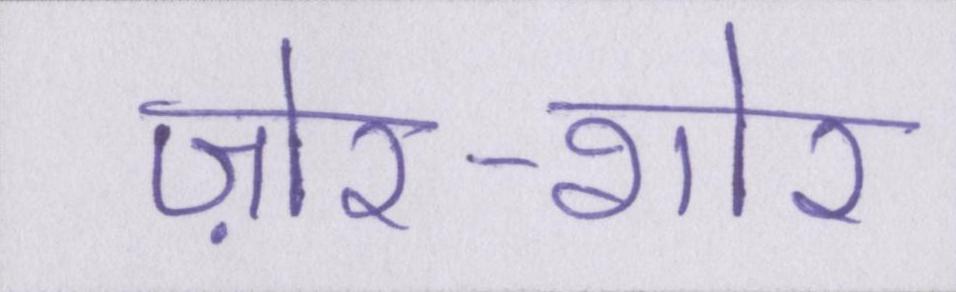 ज़ोर-शोर